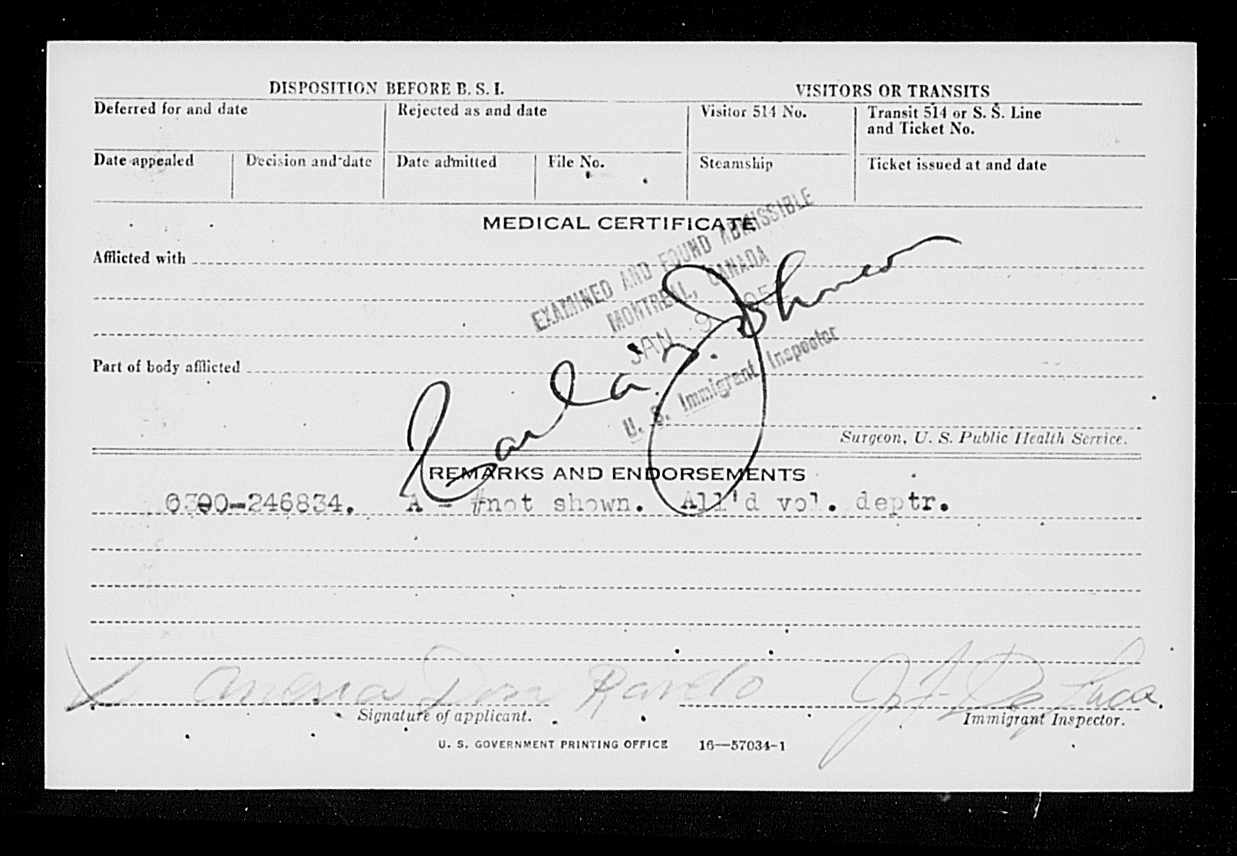 DISPOSITION BEFORE B. S. I.
VISITORS OR TRANSITS
Deferred for and date
Rejected as and date
Visitor 514 No.
Transit 514 or S. S. Line and Ticket No.
Date appealed
Decision and date
Date admitted
File No.
Steamship
Ticket issued at and date
MEDICAL CERTIFICATE
EXAMINED AND FOUND ADMISSIBLE
MONTREAL, CANADA
JAN 9
U. S. Immigrant Inspector
Afflicted with
Part of body afflicted
Johnson
Surgeon, U. S. Public Health Service.
REMARKS AND ENDORSEMENTS
0300-246834. A - #not shown. All'd vol. deptr.
Ravelo
Signature of applicant.
Immigrant Inspector.
U. S. GOVERNMENT PRINTING OFFICE 16—57034-1